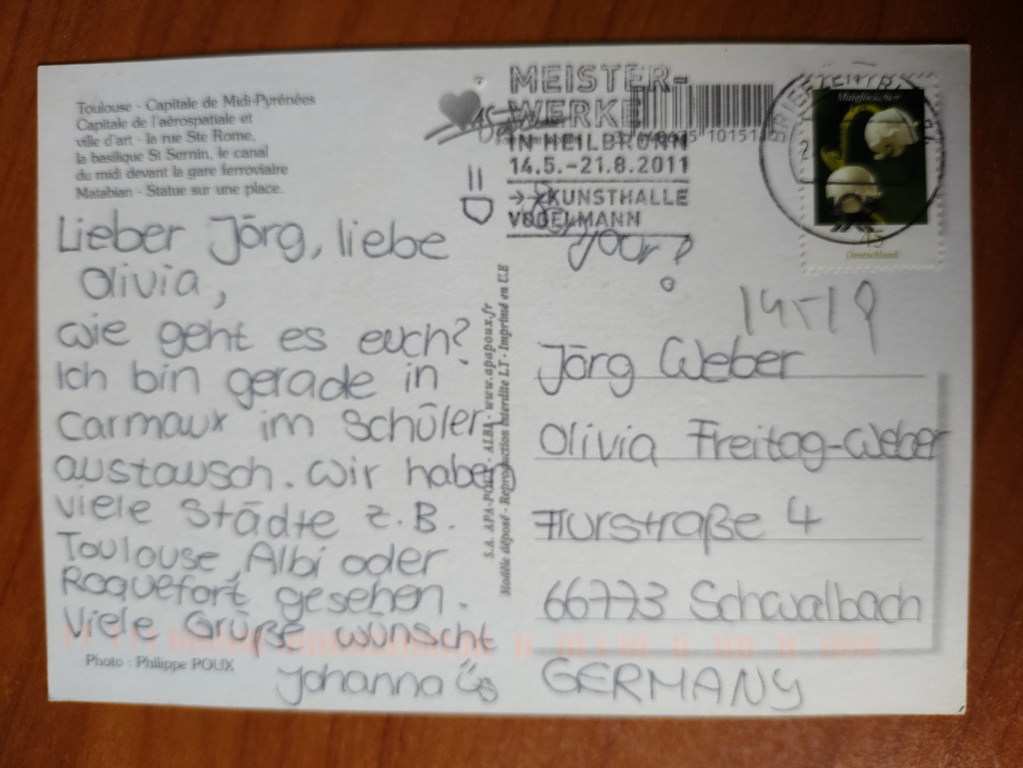 Toulouse - Capitale de Midi-Pyrénées
Capitale de l'aérospatiale et
ville d'art - la rue Ste Rome,
la basilique St Sernin, le canal
du midi devant la gare ferroviaire
Matabian - Statue sur une place.
Lieber Jörg, liebe
Olivia,
wie geht es euch?
Ich bin gerade in
Carmaux im Schüler
austausch. Wir haben
viele Städte z.B.
Toulouse, Albi oder
Roquefort gesehen.
Viele Grüße wünscht
Johanna
Photo : Philippe POUX
S.A. APA-POUX - ALBI - www.apapoux.fr
Modèle déposé - Reproduction interdite LT - Imprimé en U.E
MEISTER-
WERKE
IN HEILBRONN
14.5.-21.8.2011
→ KUNSTHALLE
VOGELMANN
your?
Maiglöckchen
45
Deutschland
14-19
Jörg Weber
Olivia Freitag-Weber
Flurstraße 4
66773 Schwalbach
GERMANY